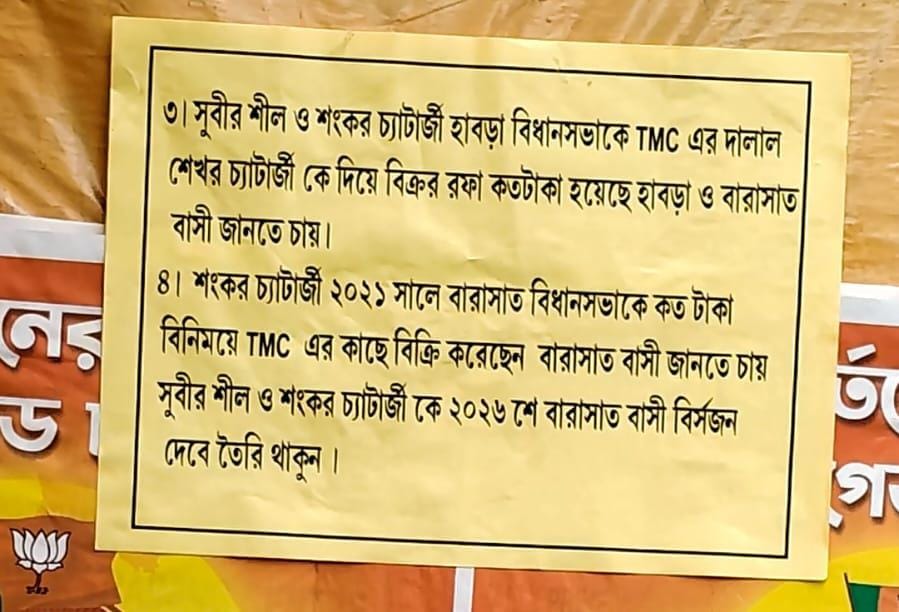 ৩। সুবীর শীল ও শংকর চ্যাটার্জী হাবড়া বিধানসভাকে TMC এর দালাল
শেখর চ্যাটার্জী কে দিয়ে বিক্রর রফা কতটাকা হয়েছে হাবড়া ও বারাসাত
বাসী জানতে চায়।
৪। শংকর চ্যাটার্জী ২০২১ সালে বারাসাত বিধানসভাকে কত টাকা
বিনিময়ে TMC এর কাছে বিক্রি করেছেন বারাসাত বাসী জানতে চায়
সুবীর শীল ও শংকর চ্যাটার্জী কে ২০২৬ শে বারাসাত বাসী বির্সজন
দেবে তৈরি থাকুন।